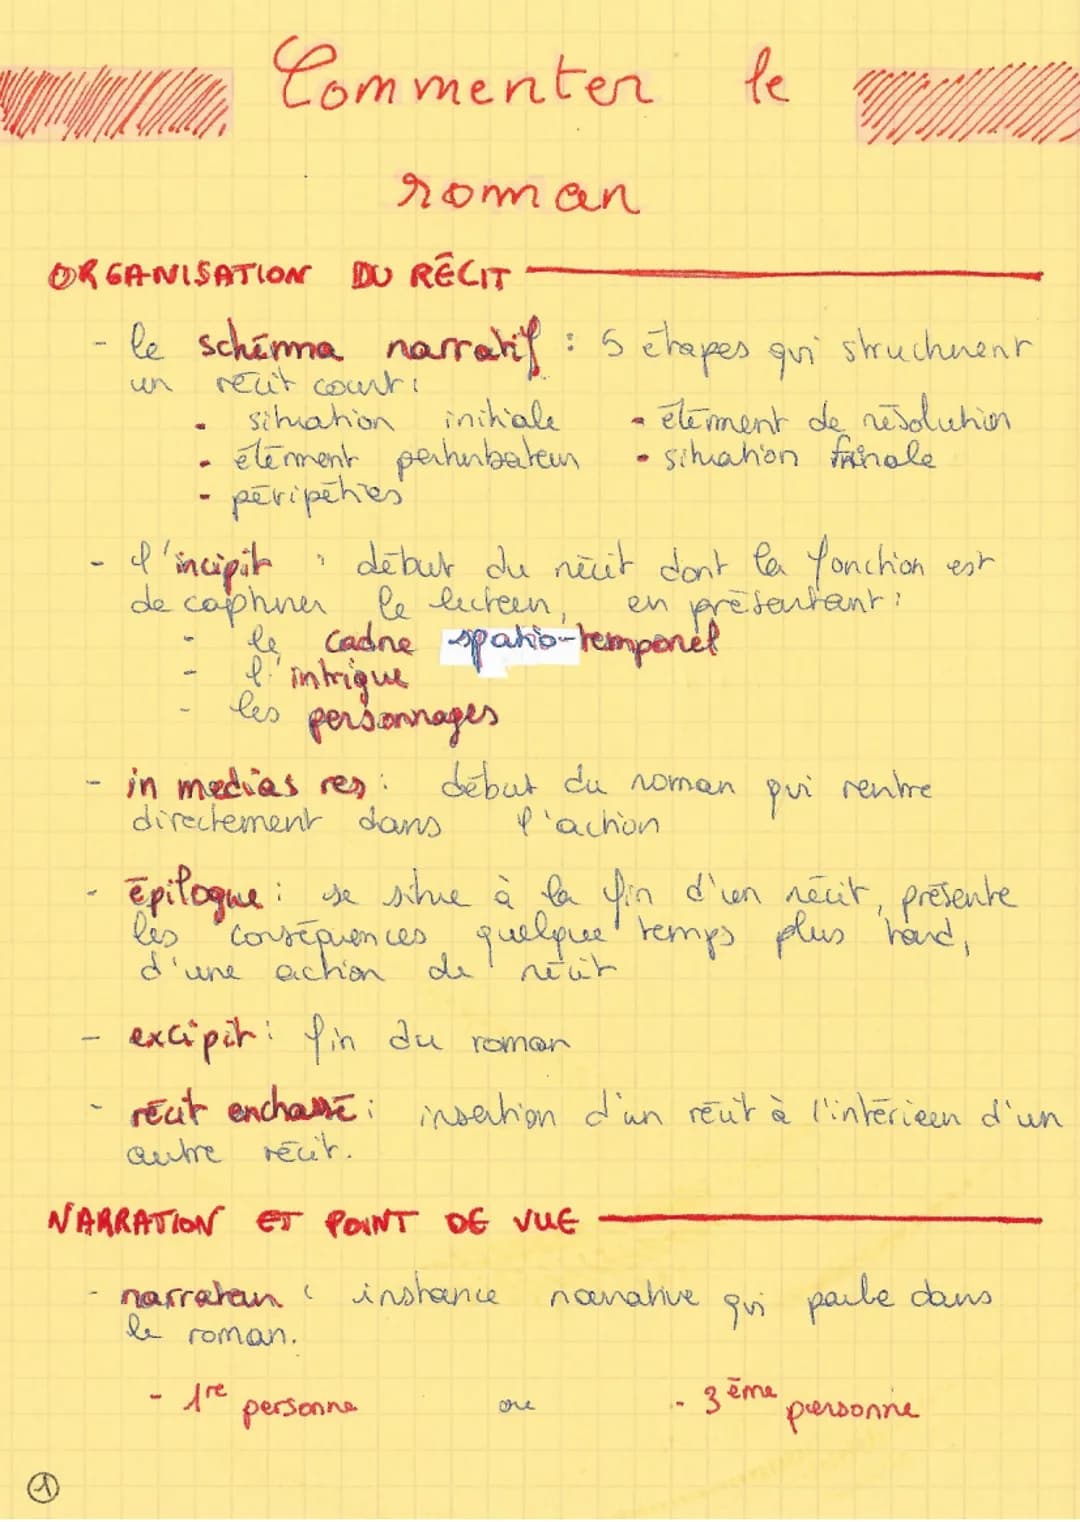 Commenter le
roman
ORGANISATION DU RÉCIT
- le schéma narratif : 5 étapes qui structurent
un récit court :
• situation initiale
• élément perturbateur
• péripéties
• élément de résolution
• situation finale
- l'incipit : début du récit dont la fonction est
de capturer le lecteur, en présentant :
- le cadre spatio-temporel
- l'intrigue
- les personnages
- in medias res : début du roman qui rentre
directement dans l'action
- épilogue : se situe à la fin d'un récit, présente
les conséquences, quelque temps plus tard,
d'une action de récit
- excipit : fin du roman
- récit enchassé : insertion d'un récit à l'intérieur d'un
autre récit.
NARRATION ET POINT DE VUE
- narrateur : instance narrative qui parle dans
le roman.
- 1re personne ou - 3ème personne
1